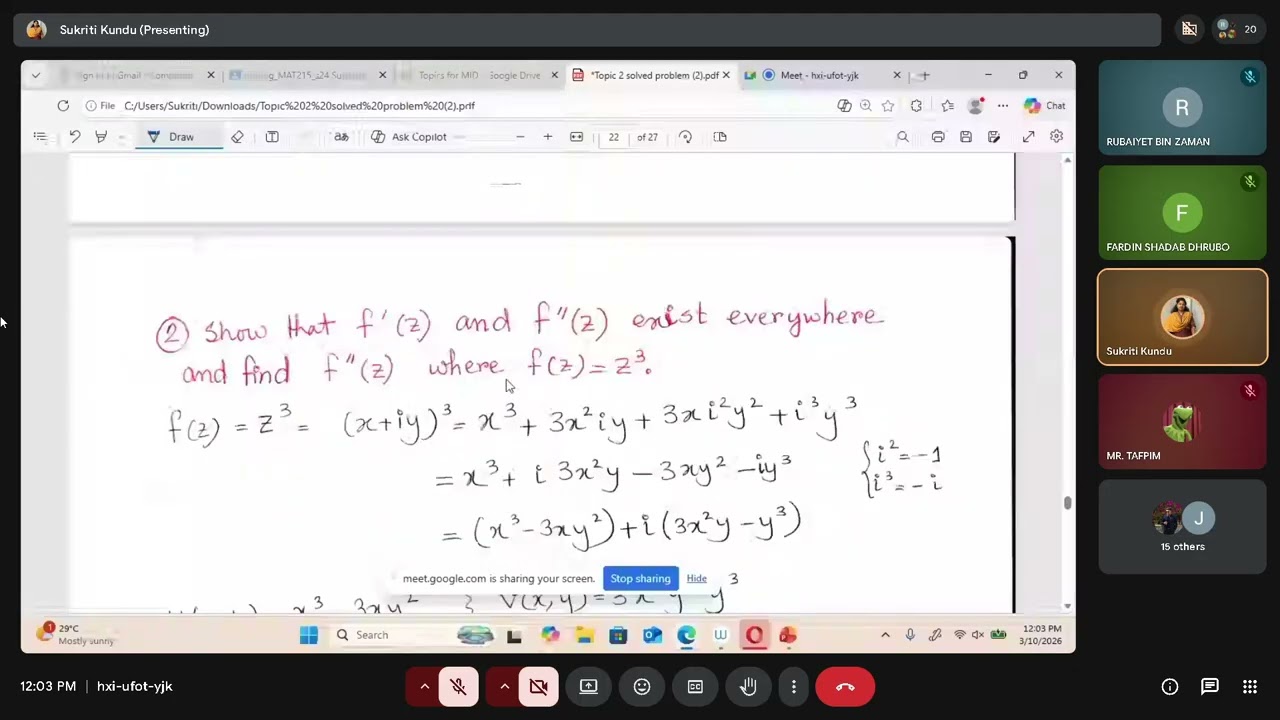 Sukriti Kundu (Presenting)
20
Topics for MID
*Topic 2 solved problem (2).pdf
Meet - hxi-ufot-yjk
File
C:/Users/Sukriti/Downloads/Topic%202%20solved%20problem%20(2).pdf
Chat
Draw
Ask Copilot
22 of 27
② Show that f'(z) and f''(z) exist everywhere
and find f''(z) where f(z) = z³.
f(z) = z³ = (x+iy)³ = x³ + 3x²iy + 3xi²y² + i³y³
= x³ + i 3x²y − 3xy² − iy³
{ i² = −1
{ i³ = − i
= (x³ − 3xy²) + i (3x²y − y³)
meet.google.com is sharing your screen.
Stop sharing
Hide
29°C
Mostly sunny
Search
12:03 PM
3/10/2026
R
RUBAIYET BIN ZAMAN
F
FARDIN SHADAB DHRUBO
Sukriti Kundu
MR. TAFPIM
J
15 others
12:03 PM | hxi-ufot-yjk